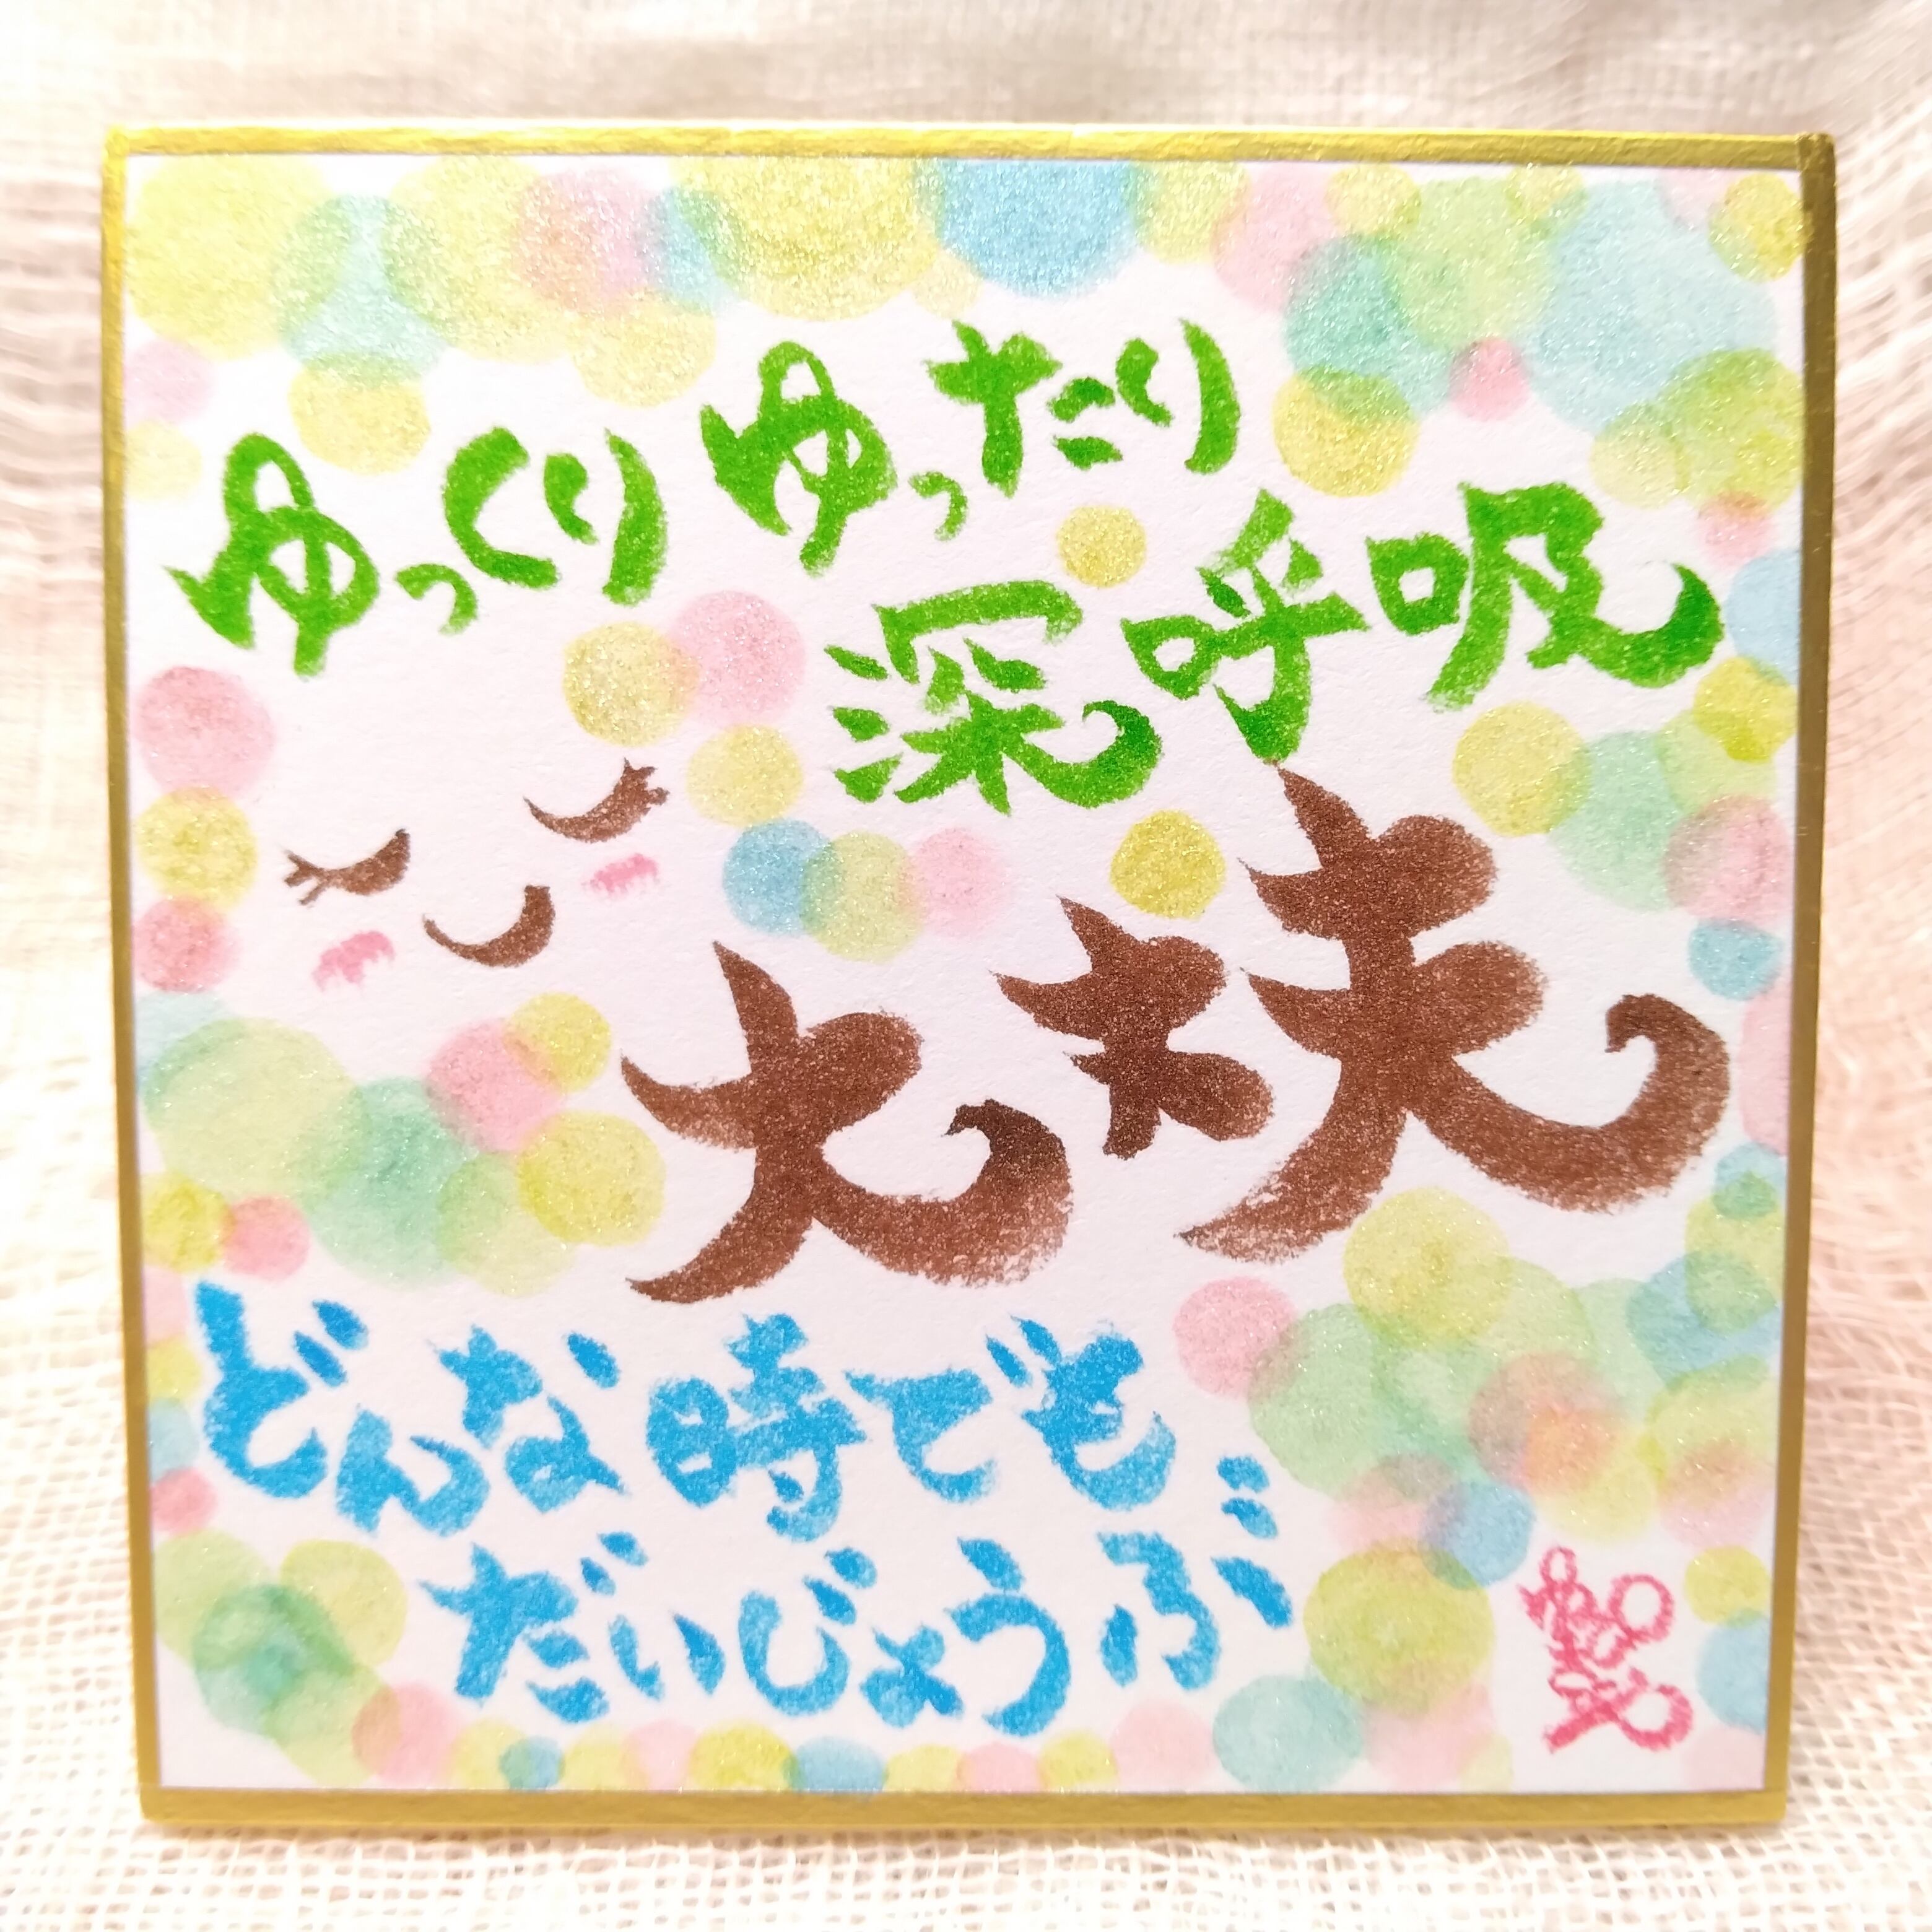 ゆっくりゆったり
深呼吸
大丈夫
どんな時でも
だいじょうぶ